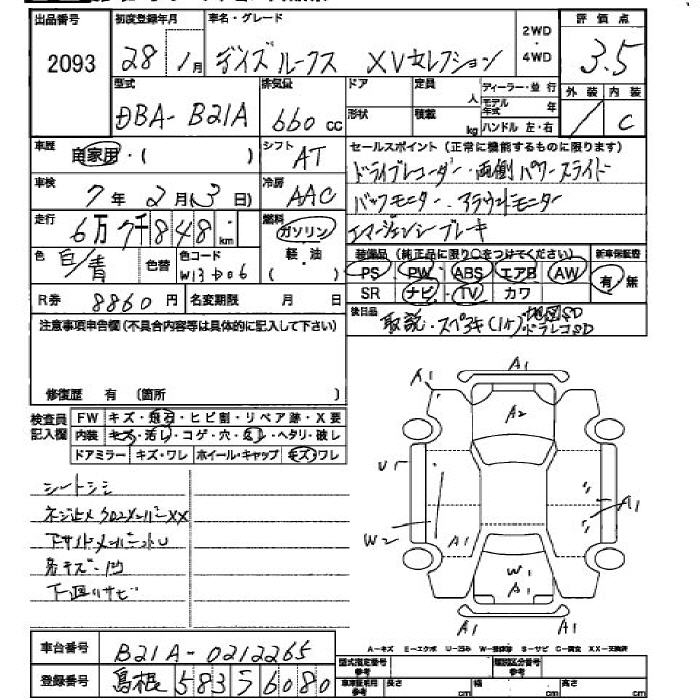 出品番号 初度登録年月 車名・グレード 2WD・4WD 評価点
2093 28年1月 デイズルークス XVセレクション 3.5
型式 排気量 ドア 定員 人 ディーラー・並行 外装 内装
DBA- B21A 660cc 形状 積載 kg モデル年式 年 ハンドル 左・右 / C
車歴 自家用・( ) シフト AT セールスポイント(正常に機能するものに限ります)
ドライブレコーダー・両側パワースライド
車検 7年2月(3日) 冷房 AAC バックモニター・アラウンドモニター
走行 6万7千848km 燃料 ガソリン 軽・油 ( ) エマージェンシーブレーキ
色 白/青 色替 色コード W13D06 装備品(純正品に限り○をつけてください) 新車保証書
PS PW ABS エアB AW 有/無
SR ナビ・TV カワ
R券 8860円 名変期限 月 日 後日品 取説・スペアキ(1ケ)・地図SD ドラレコSD
注意事項申告欄(不具合内容等は具体的に記入して下さい)
修復歴 有 (箇所 )
検査員記入欄 FW キズ・飛石・ヒビ割・リペア跡・X要
内装 キズ・汚レ・コゲ・穴・ ・ヘタリ・破レ
ドアミラー キズ・ワレ ホイール・キャップ キズ・ワレ
シートシミ
ネジ止メクロスメンバーXX
下サイドメンバー U
キズ・凹
下回リサビ
A1
A1
A2
U1
A1
W2
A1
W1
A1
A1
A1
A-キズ E-エクボ U-凹み W-補修跡 S-サビ C-腐食 XX-交換済
車台番号 B21A-0212265 型式指定番号 参考 類別区分番号 参考
登録番号 島根 583 ラ 6080 車庫証明用 参考 長さ cm 幅 cm 高さ cm